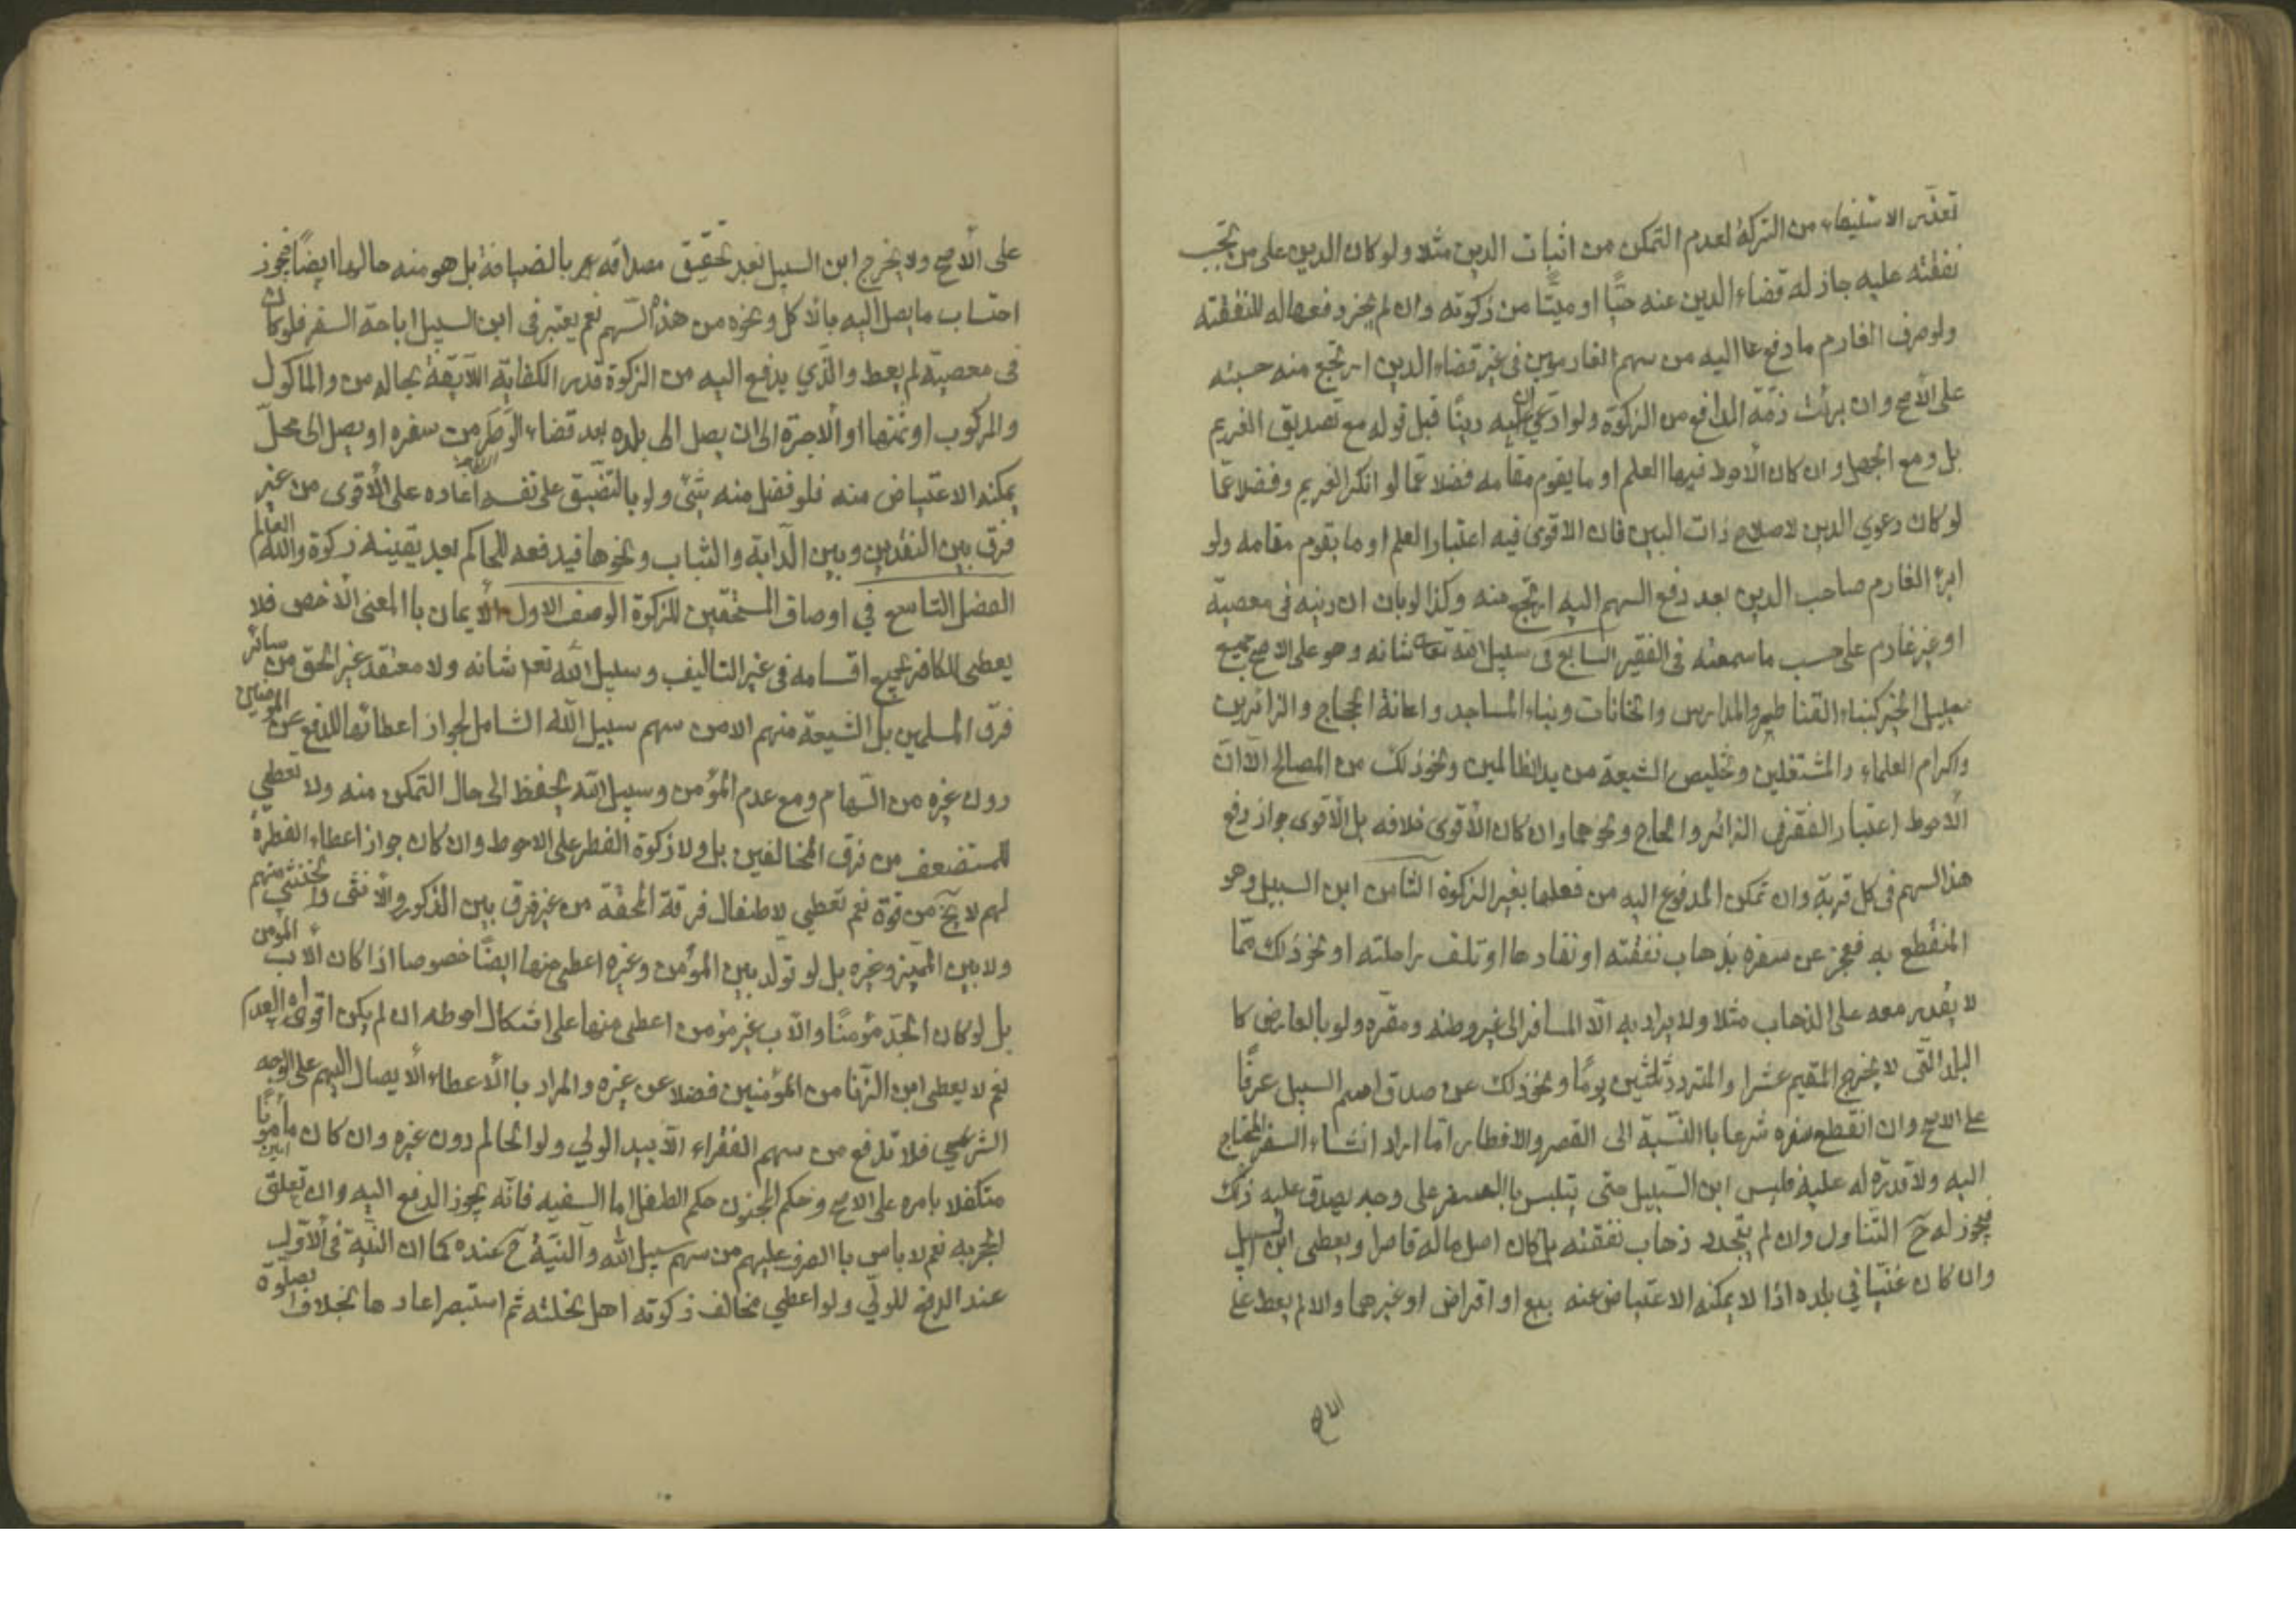 تعذر الاستيفاء من التركة لعدم التمكن من اثبات الدين مثلا ولو كان الدين على من تجب
نفقته عليه جاز له قضاء الدين عنه حيًّا او ميتًا من زكوته وان لم يجز دفعها له للنفقته
ولو صرف الغارم ما دفع اليه من سهم الغارمين فى غير قضاء الدين ارتجع منه حسبته
على الأصح وان برئت ذمّة الدافع من الزكوة ولو ادّعى ان عليه دينًا قبل قوله مع تصديق الغريم
بل ومع الجهل وان كان الأحوط فيها العلم او ما يقوم مقامه فضلا عمّا لو انكر الغريم وفضلا عمّا
لو كان دعوي الدين لاصلاح ذات البين فان الاقوى فيه اعتبار العلم او ما يقوم مقامه ولو
ابرئ الغارم صاحب الدين بعد دفع السهم اليه ارتجع منه وكذا لو بان ان دينه فى معصية
او غير غارم على حسب ما سمعته فى الفقير السابع فى سبيل الله تعالى شانه وهو على الاصح جميع
سبيل الخير كبناء القناطير والمدارس والخانات وبناء المساجد واعانة الحجاج والزائرين
واكرام العلماء والمشتغلين وتخليص الشيعة من يد الظالمين ونحو ذلك من المصالح الا ان
الأحوط اعتبار الفقر فى الزائر والحاج ونحوهما وان كان الأقوى خلافه بل الأقوى جواز دفع
هذا السهم فى كل قربة وان تمكن المدفوع اليه من فعلها بغير الزكوة الثامن ابن السبيل وهو
المنقطع به فعجز عن سفره بذهاب نفقته او نفادها او تلف راحلته او نحو ذلك ممّا
لا يقدر معه على الذهاب مثلا ولا يراد به الّا المسافر الى غير وطنه ومقره ولو بالعارض كا
البلد الّتى لا يخرج المقيم عشرا والمتردد ثلثين يومًا ونحو ذلك عن صدق اسم السبيل عرفًا
على الاصح وان انقطع سفره شرعا باالنّسبة الى القصر والافطار امّا اراد انشاء السفر المحتاج
اليه ولا قدرة له عليه فليس ابن السّبيل حتى يتلبس باالسفر على وجه يصدق عليه ذلك
فيجوز له ح التّناول وان لم يتجدد ذهاب نفقته بل كان اصل ماله قاصرا ويعطى ابن السبيل
وان كان غنيّا في بلده اذا لا يمكنه الاعتياض عنه ببيع او اقراض او غيرهما والا لم يعط على
الاصح
على الأصح ولا يخرج ابن السبيل بعد تحقيق مصداقه بالضيافة بل هو منه حالها ايضًا فيجوز
احتساب ما يصل اليه بالأكل ونحوه من هذه السّهم نعم يعتبر فى ابن السبيل اباحة السفر فلو كان
فى معصية لم يعط والذي يدفع اليه من الزكوة قدر الكفاية اللّايقة بحاله من والماكول
والمركوب او ثمنها او الاجرة الى ان يصل الى بلده بعد قضاء الوطر من سفره او يصل الى محلّ
يمكنه الاعتياض منه فلو فضل منه شئ ولو بالتضيق على نفسه اعاده على الأقوى من غير
فرق بين النقدين وبين الدآبة والثياب ونحوها فيدفعه للحاكم بعد يقينه زكوة والله العالم
الفصل التاسع في اوصاف المستحقين للزكوة الوصف الاول الأيمان باالمعنى الأخص فلا
يعطى الكافر بجميع اقسامه فى غير التاليف وسبيل الله تعم شانه ولا معتقد غير الحق من سائر
فرق المسلمين بل الشيعة منهم الا من سهم سبيل الله الشامل لجواز اعطائها للدفع عن المؤمنين
دون غيره من السّهام ومع عدم المؤمن وسبيل الله يحفظ الى حال التمكن منه ولا يعطي
للمستضعف من فرق المخالفين بل ولا زكوة الفطر على الاحوط وان كان جواز اعطاء الفطرة
لهم لا يخ من قوة نعم تعطي لاطفال فرقة المحقة من غير فرق بين الذكور والأنثى والخنثي منهم
ولا بين المميّز وغيره بل لو تولّد بين المؤمن وغيره اعطى منها ايضًا خصوصا اذا كان الأب المؤمن
بل لو كان الجدّ مؤمنًا والأب غير مؤمن اعطى منها على اشكال احوطه ان لم يكن اقواه العدم
نعم لا يعطى ابن الزّنا من المؤمنين فضلا عن غيره والمراد باالأعطاء الأيصال اليهم على الوجه
الشرعي فلا تدفع من سهم الفقراء الّا بيد الولي ولو الحالم دون غيره وان كان مأمونًا امين
متكفلا بامره على الاصح وحكم المجنون حكم الطفل اما السفيه فانّه يجوز الدفع اليه وان تعلق
الحجر به نعم لا باس باالصرف عليهم من سهم سبيل الله والنيّة ح عنده كما ان النيّة فى الأوّل
عند الدفع للولّي ولو اعطي مخالف زكوته اهل نحلته ثم استبصر اعادها بخلاف الصلوة